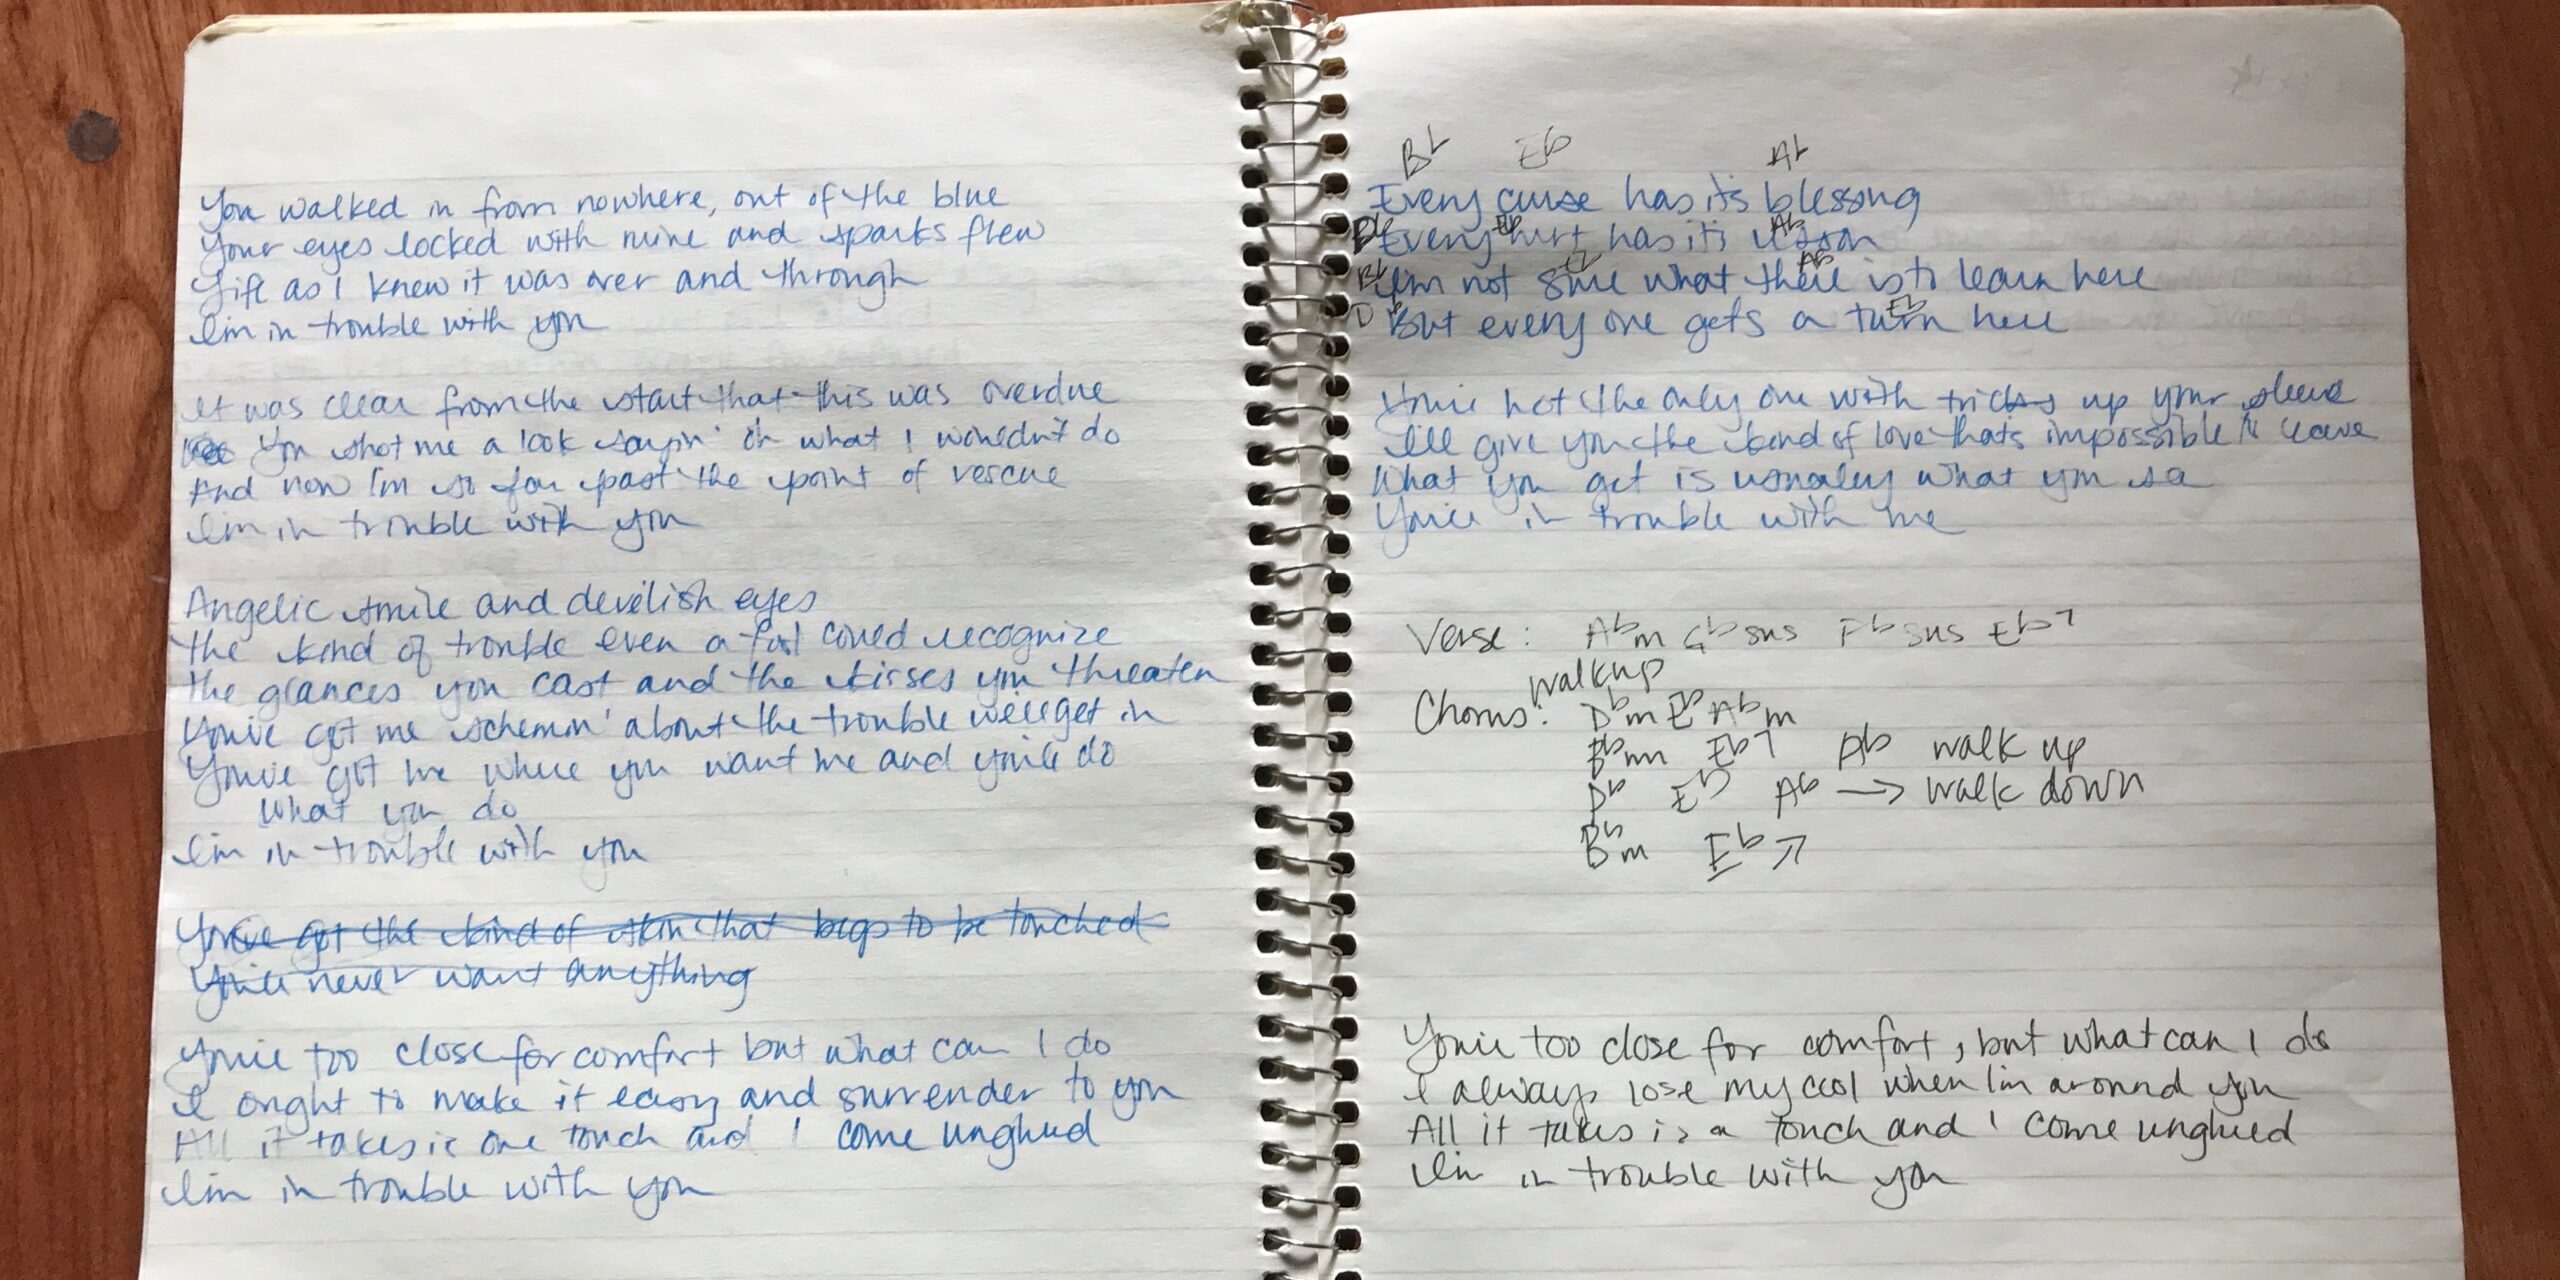 You walked in from nowhere, out of the blue
Your eyes locked with mine and sparks flew
Life as I knew it was over and through
I'm in trouble with you
It was clear from the start that this was overdue
You shot me a look sayin' oh what I wouldn't do
And now I'm so far past the point of rescue
I'm in trouble with you
Angelic smile and develish eyes
The kind of trouble even a fool could recognize
The glances you cast and the kisses you threaten
You've got me schemin' about the trouble we'll get in
You've got me where you want me and you'll do
What you do
I'm in trouble with you
You've got the kind of skin that begs to be touched
You'll never want anything
You're too close for comfort but what can I do
I ought to make it easy and surrender to you
All it takes is one touch and I come unglued
I'm in trouble with you
Bb Eb Ab
Every curse has it's blessing
Eb Ab
Every hurt has it's lesson
Ab
I'm not sure what there is to learn here
Eb
But every one gets a turn here
You're not the only one with tricks up your sleeve
I'll give you the kind of love thats impossible to leave
What you get is usually what you see
You're in trouble with me
Verse: Abm Gbsus Fbsus Eb7
walkup
Chorus: Dbm Eb Abm
Bbm Eb7 Ab walk up
Db Eb Ab → walk down
Bbm Eb7
You're too close for comfort, but what can I do
I always lose my cool when I'm around you
All it takes is a touch and I come unglued
I'm in trouble with you